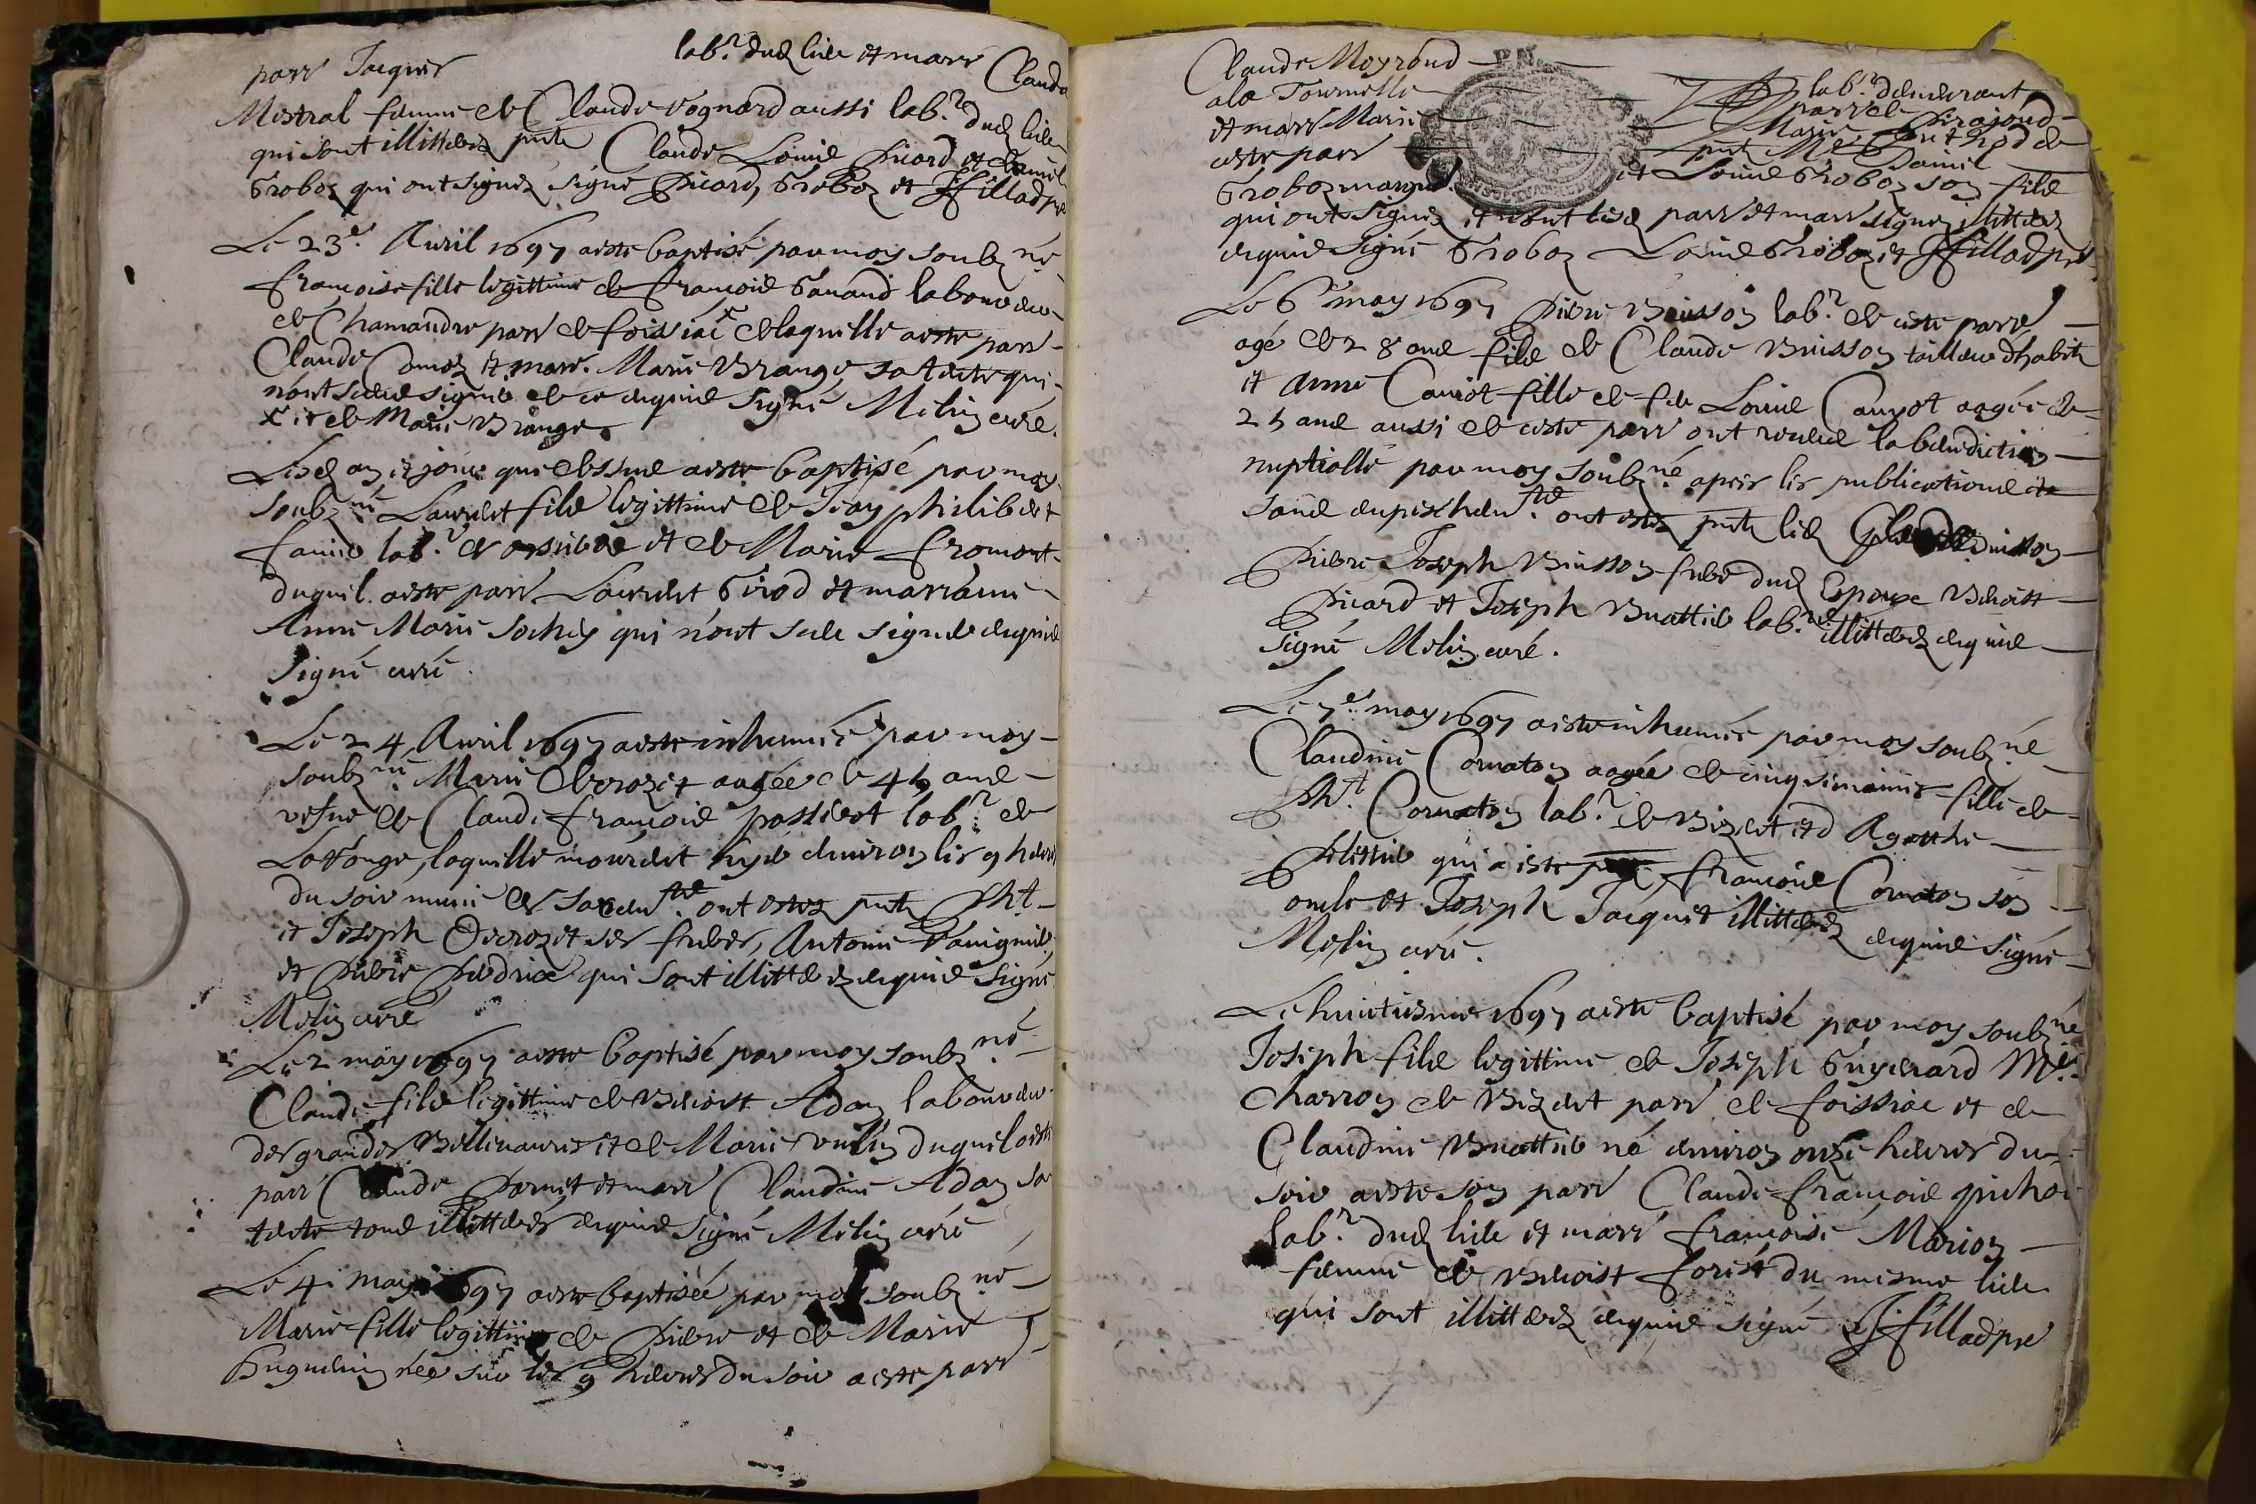 parr Jacques lab.r dud lieu et marr Clauda
Mestral femme de Claude vognard aussi lab.r dud lieu
qui sont illitterez pnts Claude Louis Picard et Daniel
Groboz qui ont signez signé Picard, Groboz et Jffillad pre
Le 23e. Avril 1697 a este baptisé par moy soubz né
francoise fille legittime de francois laboureur
de Chamandre parr de foissiac x de laquelle a este parr
Claude et marr. Marie Brange sa tante qui
n'ont sceu signer de ce enquis signé Melin curé.
x et de Marie Brange
Lesd an et jour que dessus a este baptisé par moy
soubz né Laurent fils legittime de Jean philibert
lab.r et de Marie fromont
duquel a este parr Laurent Girod et marraine
Anne Marie qui n'ont sceu signer enquis
signé curé.
Le 24 Avril 1697 a este inhumée par moy
soubz né Marie Decrozet aagée de 45 ans
vefve de Claude francois lab.r de
laquelle mourut hyer environ les 9 heures
du soir munie des sacrem.ts ont estez pnts Pht.
et Joseph Decrozet ses freres, Antoine
et Pierre qui sont illitterez enquis signé
Melin curé
Le 2 may 1697 a este baptisé par moy soubz né
Claude fils legittime de Benoist Adam laboureur
des grandes et de Marie vulin duquel a este
parr Claude et marr Claudine Adam sa
tante tous illitterés enquis signé Melin curé
Le 4e may 1697 a este baptisée par moy soubz né
Marie fille legittime de Pierre et de Marie
née sur les 9 heures du soir a este parr
Claude Moyroud lab.r demeurant
a la Tournelle parr de
et marr Marie de
ceste parr pnt Me Daniel
Groboz et Louis Groboz son fils
qui ont signez et sont lesd parr et marr illitterez
enquis signé Groboz Louis Groboz et Jffillad pre
Le 6e may 1697 Pierre Buisson lab.r de ceste parr
agé de 28 ans fils de Claude Buisson tailleur d'habitz
et Anne Cauyot fille de feu Louis Cauyot aagée de
25 ans aussi de ceste parr ont receus la benediction
nuptialle par moy soubz né apres les publications ete
sans empeschem.ts ont estez pnts lesd Buisson
Pierre Joseph Buisson frere dud Epoux Benoist
Picard et Joseph Buattier lab.rs illitterez enquis
signé Melin curé.
Le 7e may 1697 a este inhumée par moy soubz né
Claudine Cornaton aagée de cinq semaines fille de
Pht. Cornaton lab.r de et d Agathe
qui a este francois Cornaton son
oncle et Joseph Jacquet illitterez enquis signé
Melin curé.
Le huictiesme 1697 a este baptisé par moy soubz né
Joseph fils legittime de Joseph Guyenard Me
Charron de parr de foissiac et de
Claudine Buattier né environ onze heures du
soir a este son parr Claude francois
lab.r dud lieu et marr francoise Marion
femme de Benoist forest du mesme lieu
qui sont illitterez enquis signé Jffillad pre